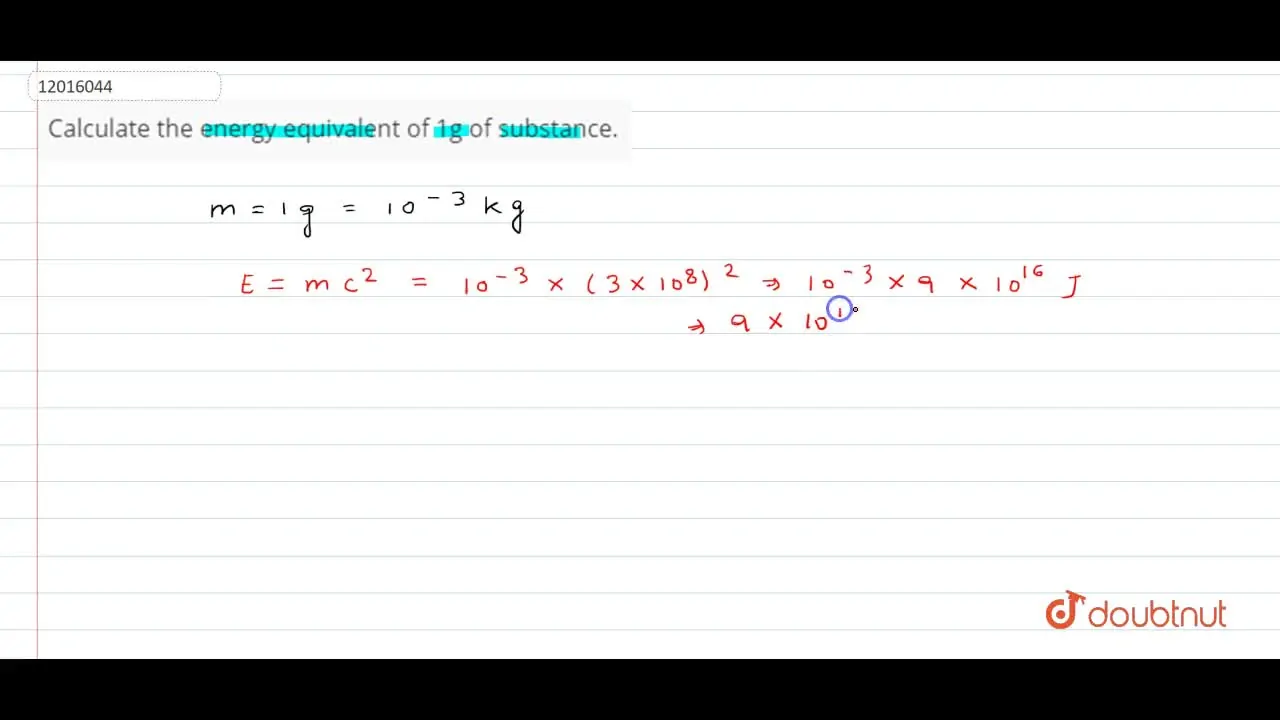 12016044
Calculate the energy equivalent of 1g of substance.
m = 1 g = 10⁻³ kg
E = mc² = 10⁻³ × (3 × 10⁸)² ⇒ 10⁻³ × 9 × 10¹⁶ J
⇒ 9 × 10¹
doubtnut